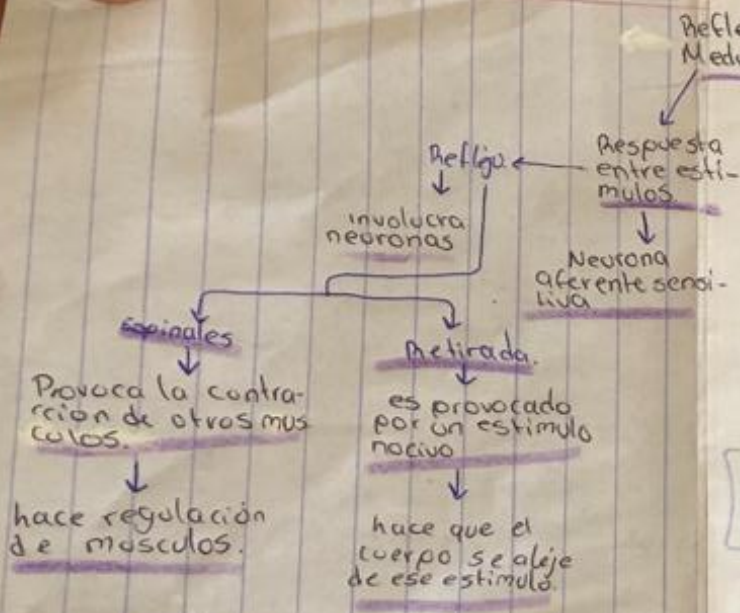 Refle
Med
Respuesta
entre estí-
mulos.
Neurona
aferente sensi-
tiva
Reflejo.
involucra
neuronas
Espinales
Provoca la contra-
cción de otros mus
culos.
hace regulación
de músculos.
Retirada.
es provocado
por un estimulo
nocivo
hace que el
cuerpo se aleje
de ese estimulo.